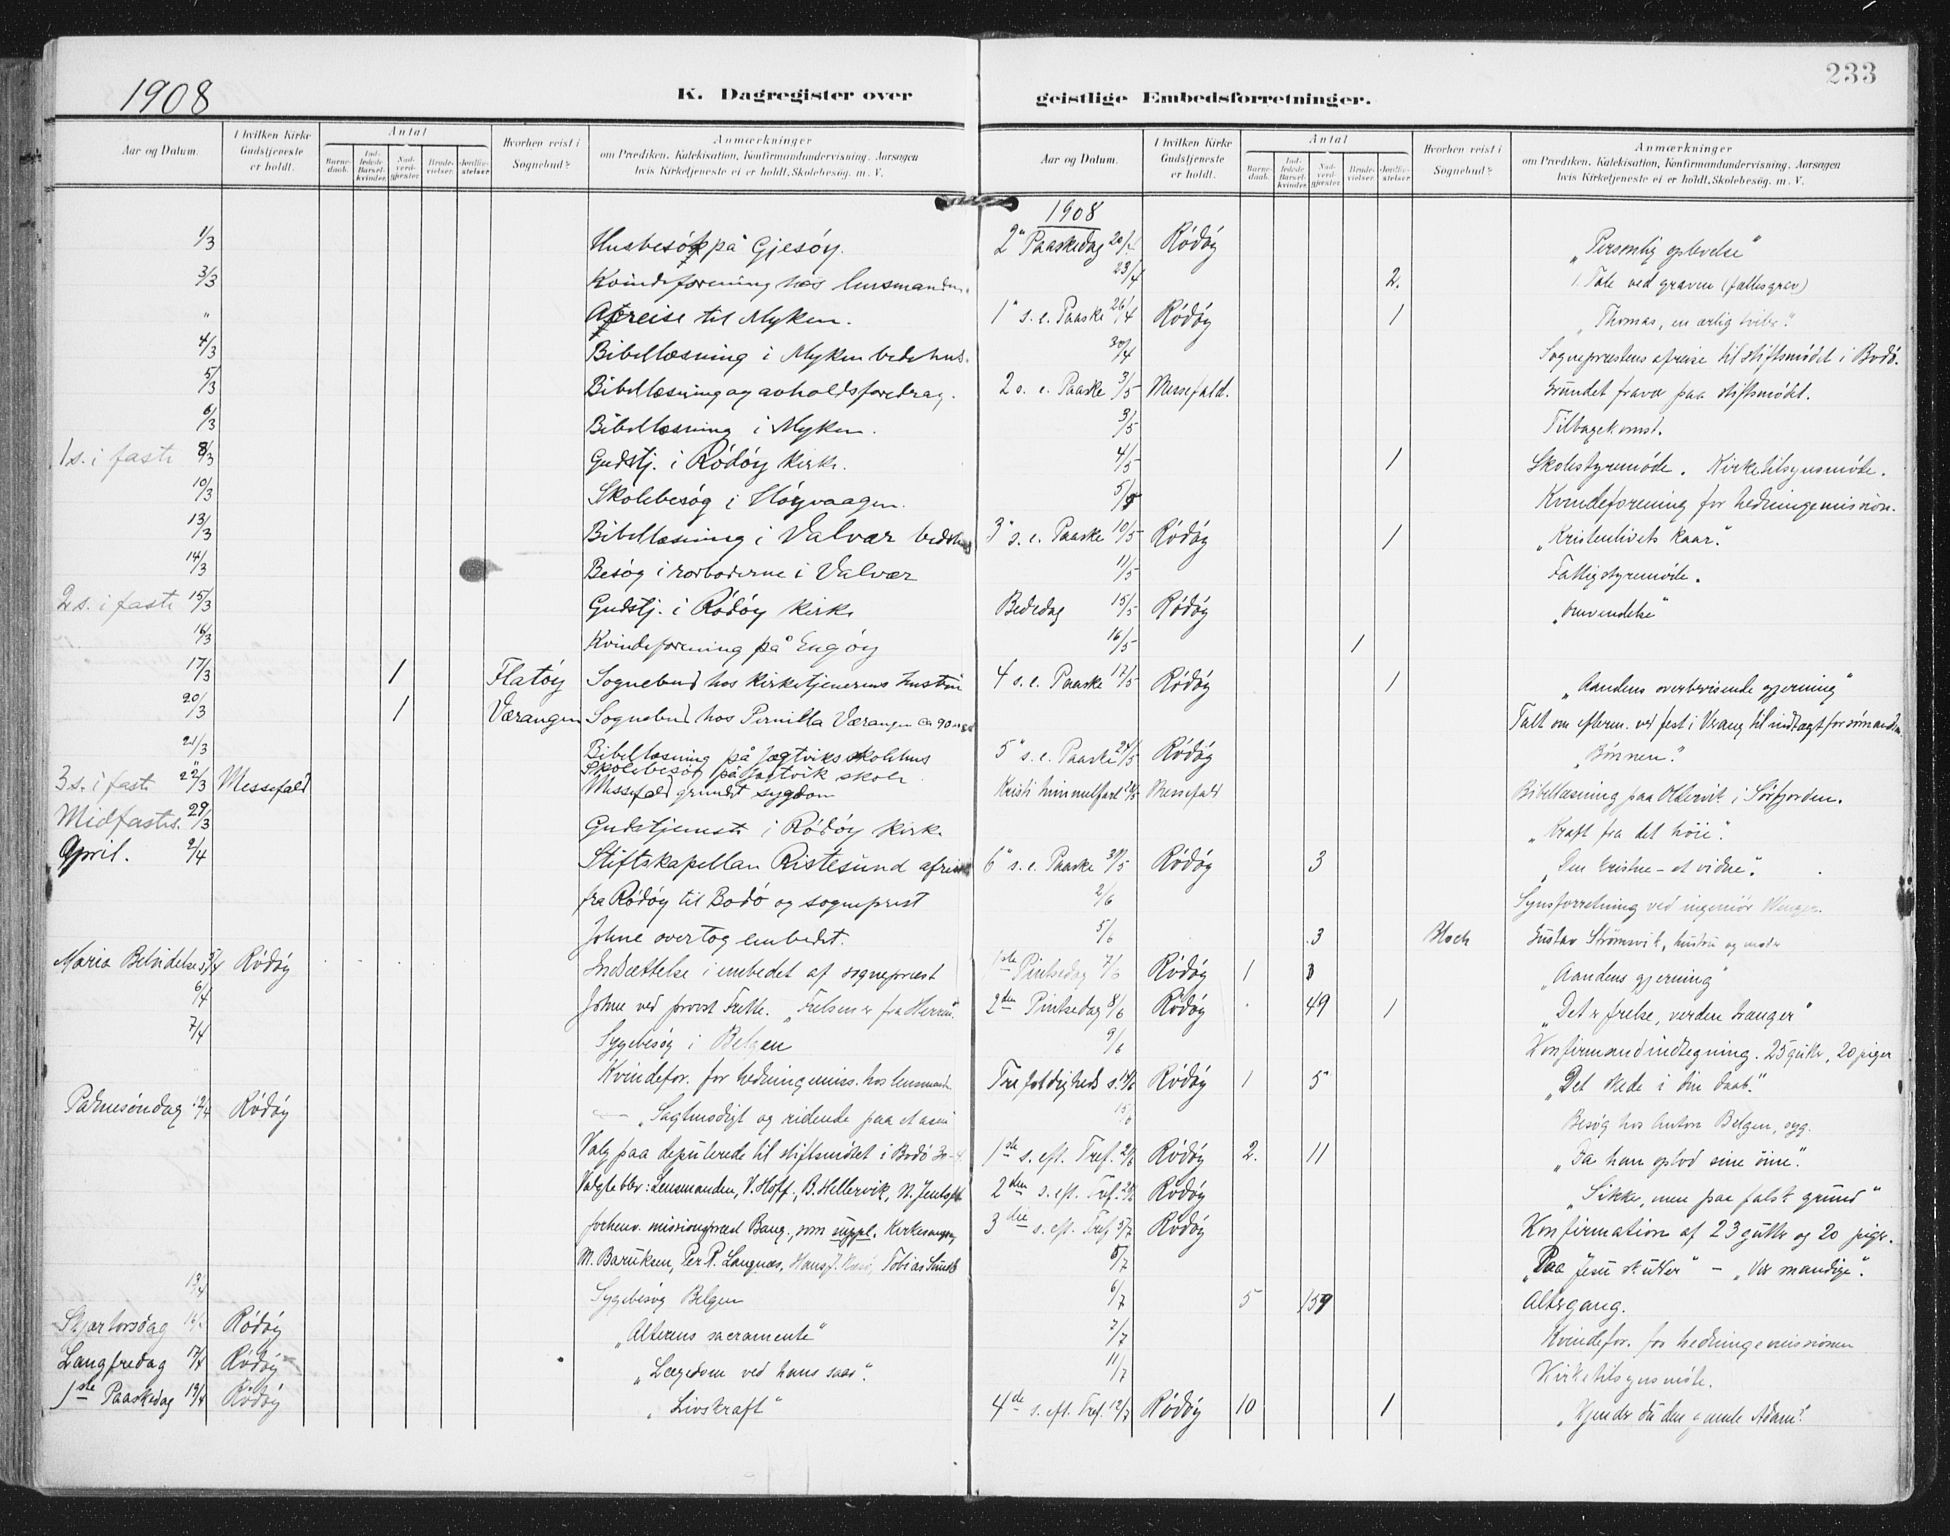 233
1908
K. Dagregister over
Aar og Datum.
I hvilken Kirke Gudstjeneste er holdt.
Antal
Barnedaab.
Indledede Barselkvinder.
Nadverdgjester
Brudevielser.
Jordfæstelser.
Hvorhen reist i Sognebud?
Anmærkninger
om Prædiken. Katekisation, Konfirmandundervisning. Aarsagen
hvis Kirketjeneste ei er holdt, Skolebesøg. m. V.
1/3 Husbesøk på Gjesøy.
3/3 Kvindeforening hos lensmanden.
" Afreise til Myken.
4/3 Bibellæsning i Myken bedehus.
5/3 Bibellæsning og avholdsforedrag.
6/3 Bibellæsning i Myken.
1 s. i faste 8/3 Gudstj. i Rødøy kirke.
10/3 Skolebesøg i Høyvaagen.
13/3 Bibellæsning i Valvær bedehus
14/3 Besøg i rorboderne i Valvær
2 s. i faste 15/3 Gudstj. i Rødøy kirke
16/3 Kvindeforening på Engøy
17/3 1 Flatøy Sognebud hos kirketjenerens hustru
20/3 1 Værangen Sognebud hos Pernilla Værangen ca 90
21/3 Bibellæsning på Jægtviks skolehus
Skolebesøg på Jægtvik skole
3 s. i faste 22/3 Messefald Messefald grundet sygdom
Midfastes. 29/3 Gudstjeneste i Rødøy kirke.
April. 2/4 Stiftskapellan Ristesund afreist
fra Rødøy til Bodø og sogneprest
Johne overtog embedet.
Maria Bebudelse 5/4 Rødøy Indsættelse i embedet af sogneprest
6/4 Johne ved provst "Frelsen er fra Herren".
7/4 Sygebesøg i Belgen
Kvindefor. for hedningemiss. hos lensmanden
Palmesøndag 12/4 Rødøy — "Sagtmodigt og ridende paa et asen
Valg paa deputerede til stiftsmøtet i Bodø 30-4
Valgte blev: Lensmanden, V. Hoff., B. Hellervik, N. Jentoft
forhenv. missionsprest Bang., som suppl. Kirkesanger
M. Baruksen, Per P. Langnæs, Hans J. Tobias Sund
13/4 Sygebesøg Belgen
Skjærtorsdag 16/4 Rødøy "Alterens sacramente"
Langfredag 17/4 Rødøy "Lægedom ved hans saar".
1ste Paaskedag 19/4 Rødøy "Livskraft"
geistlige Embedsforretninger.
Aar og Datum.
I hvilken Kirke Gudstjeneste er holdt.
Antal
Barnedaab.
Indledede Barselkvinder.
Nadverdgjester
Brudevielser.
Jordfæstelser.
Hvorhen reist i Sognebud?
Anmærkninger
om Prædiken, Katekisation, Konfirmandundervisning, Aarsagen
hvis Kirketjeneste ei er holdt, Skolebesøg. m. V.
1908
2" Paaskedag 20/4 Rødøy "Personlig oplevelse"
23/4 2. 1. Tale ved graven (fællesgrav)
1" s. e. Paaske 26/4 Rødøy 1 "Thomas, en ærlig tviler."
30/4 Sogneprestens afreise til stiftsmødet i Bodø.
2 s. e. Paaske 3/5 Messefald. Grundet fravær paa stiftsmødet.
3/5 Tilbagekomst.
4/5 1 Skolestyremøde. Kirketilsynsmøte.
5/5 Kvindeforening for hedningemission.
3" s. e. Paaske 10/5 Rødøy 1 "Kristenlivets kaar".
11/5 Fattigstyremøde.
Bededag 15/5 Rødøy "Omvendelse"
16/5 1
4 s. e. Paaske 17/5 Rødøy 1 "Aandens overbevisende gjerning"
Talt om efterm. ved fest i Vrang til indtægt for sømandsm.
5" s. e. Paaske 24/5 Rødøy "Bønnen".
Kristi himmelfart 28/5 Messefald Bibellæsning paa Oldervik i Sørfjorden.
"Kraft fra det høie".
6" s. e. Paaske 31/5 Rødøy 3 "Den kristne – et vidne".
2/6 Synsforretning ved ingeniør
5/6 3 Hoch Gustav Strømsvik, hustru og moder
1ste Pintsedag 7/6 Rødøy 1 3 "Aandens gjerning"
2den Pintsedag 8/6 Rødøy 49 1 "Det er frelse, verden trænger"
9/6 Konfirmandindtegning. 25 gutter, 20 piger
Trefoldigheds s. 14/6 Rødøy 1 5 "Det skede i din daab".
15/6 Besøg hos Anton Belgen, syg.
1ste s. eft. Tref. 21/6 Rødøy 2. 11 "Da han oplod sine øine".
2den s. eft. Tref. 28/6 Rødøy "Sikker, men paa falsk grund"
3die s. eft. Tref. 5/7 Rødøy Konfirmation af 23 gutter og 20 piger.
5/7 "Paa Jesu skulder" – "Vær mandige".
6/7 5 159 Altergang.
7/7 Kvindefor. for hedningemissionen
11/7 Kirketilsynsmøte.
4de s. eft. Tref. 12/7 Rødøy 10 1 "Kjender du den gamle Adam?